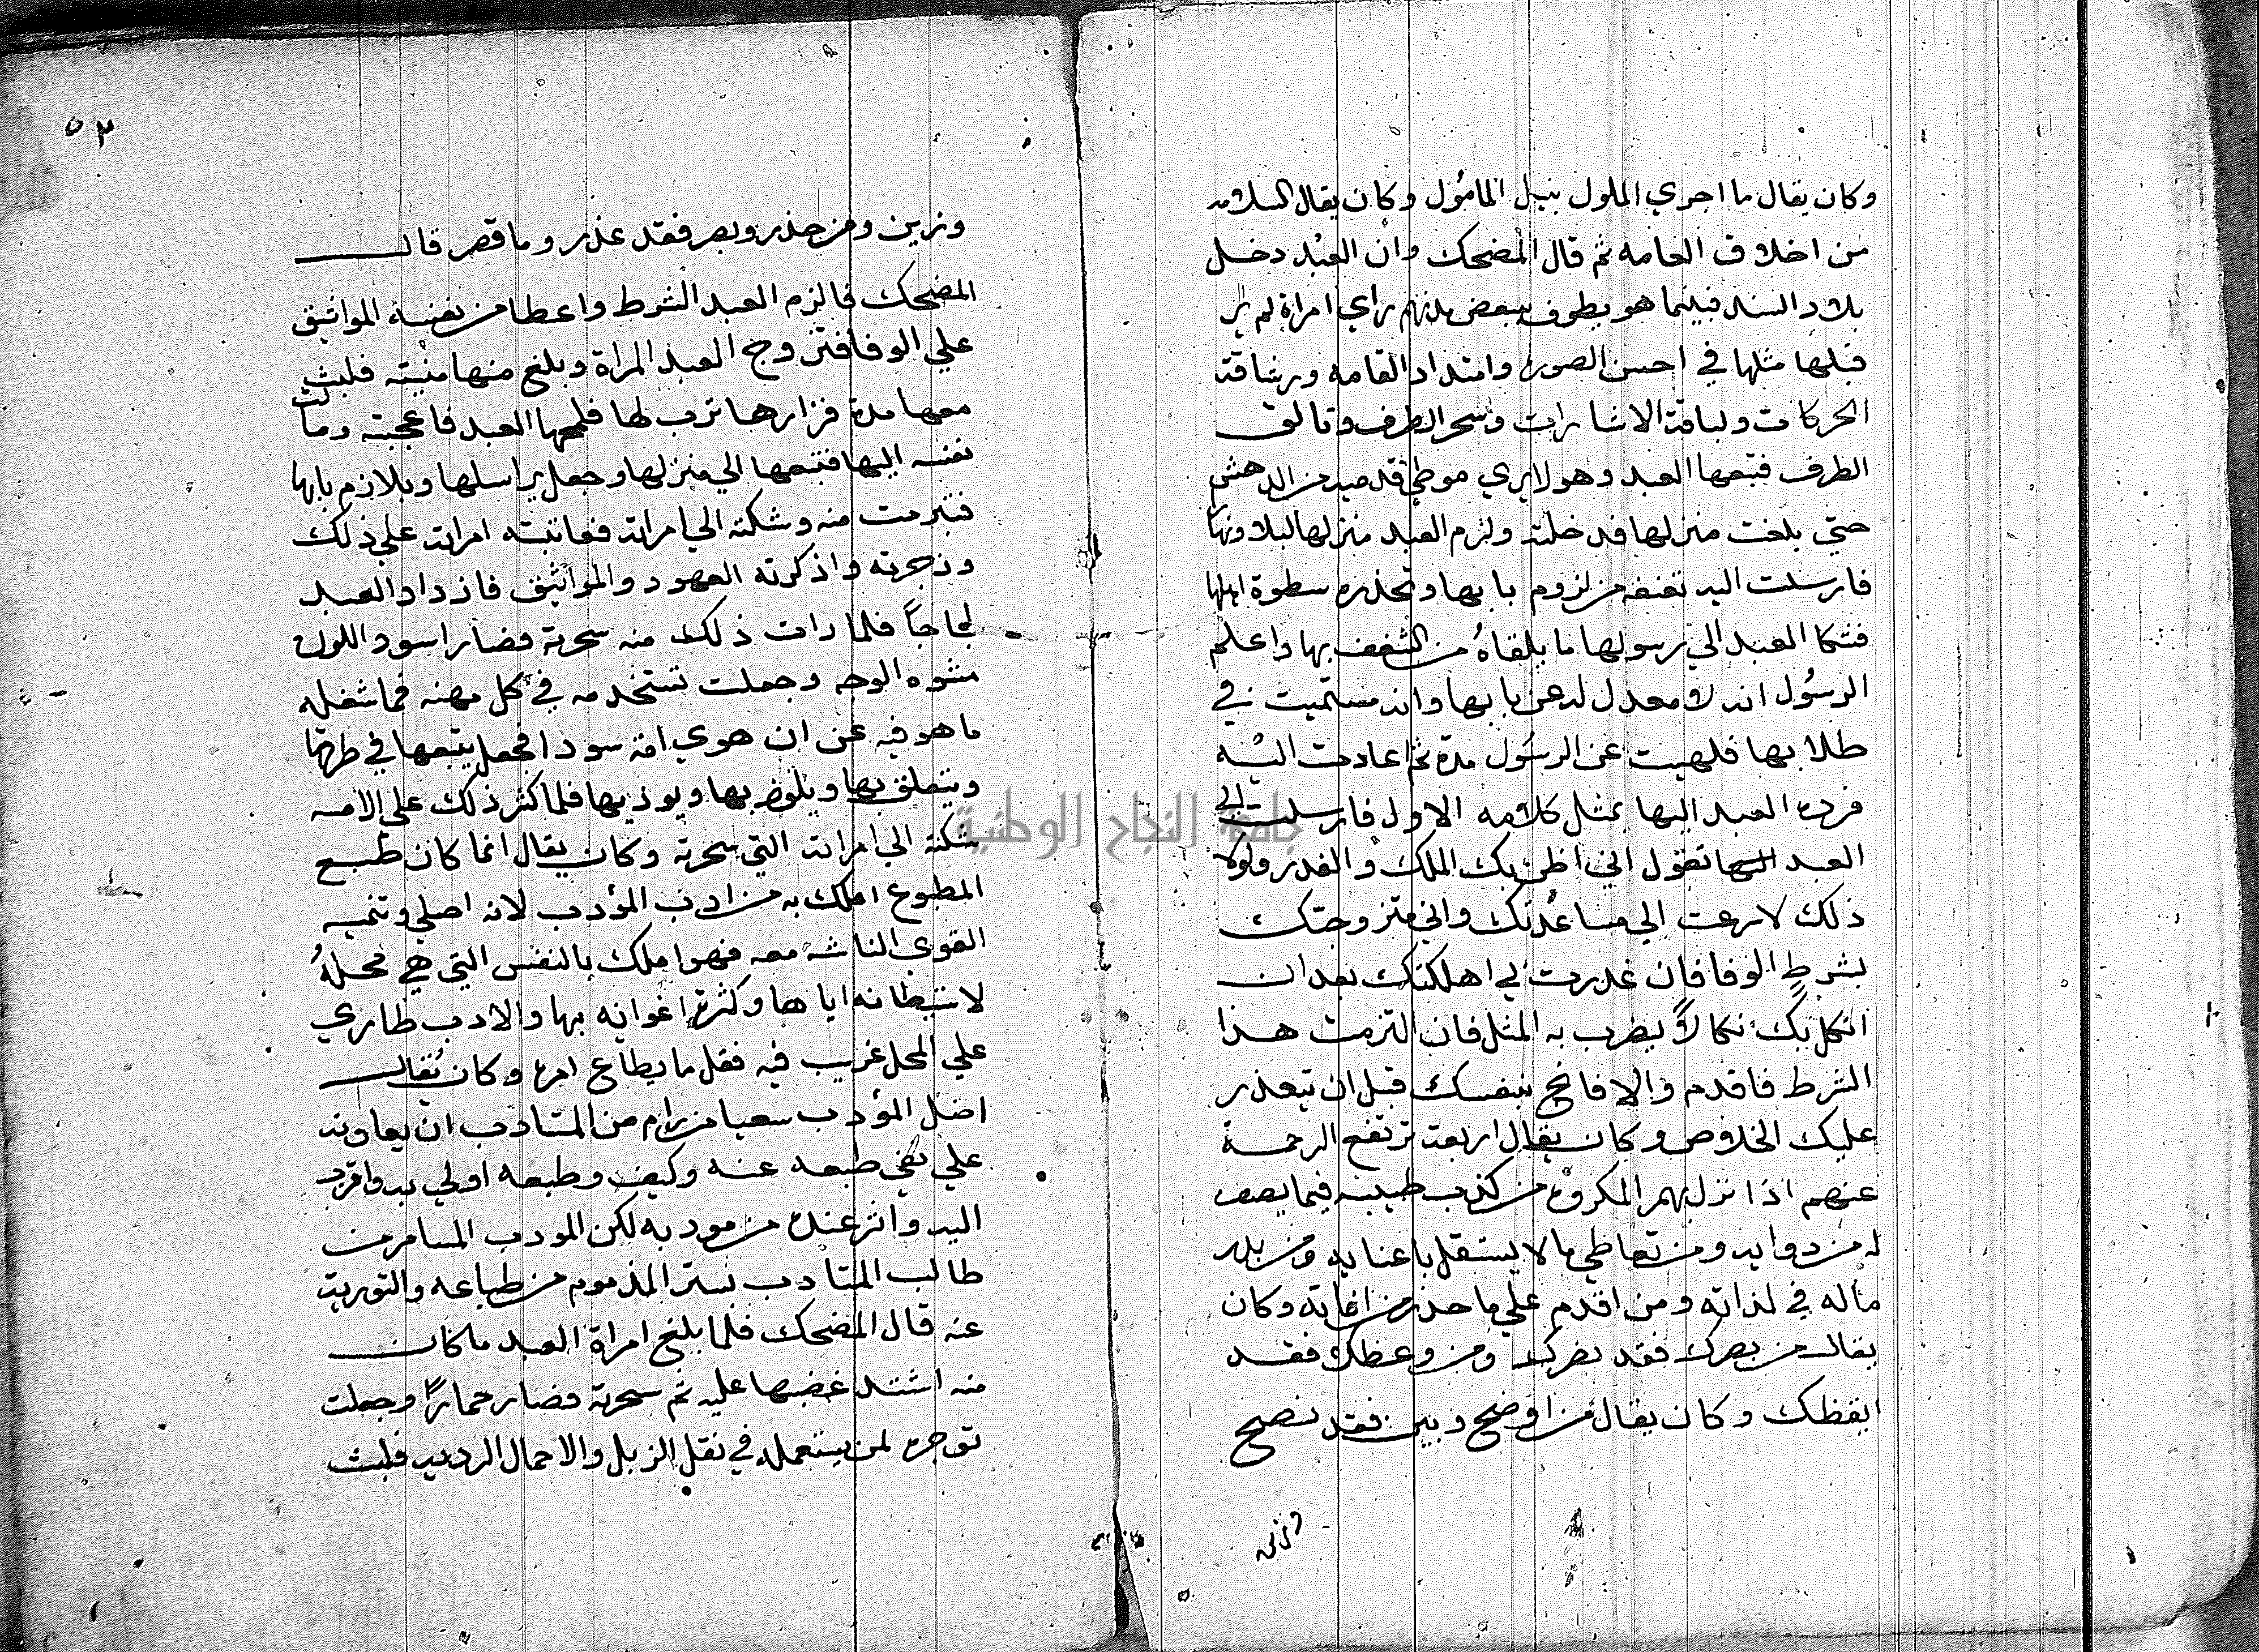 وكان يقال ما احري الملول بنيل المامُول وكان يقال الملامه
من اخلاق العامه ثم قال المضحك وان العبد دخل
بلاد السند فبينما هو يطوف ببعض مدنهم راي امراة لم ير
قبلها مثلها في احسن الصوره وامتداد القامه ورشاقة
الحركات ولباقة الاشارات وسحر الطرف وتالق
الطرف فتبعها العبد وهو لايري موطئ قدميه من الدهش
حتي بلغت منزلها فدخلته ولزم العبد منزلها ليلا ونهارا
فارسلت اليه تعنفه من لزوم بابها وتحذره سطوة اهلها
فشكا العبد الي رسولها ما يلقاهُ من الشغف بها واعلم
الرسُول انه لا معدل له عن بابها وانه مستميت في
طلابها فلهيت عن الرسول مدة ثم اعادت اليه
فرده العبد اليها بمثل كلامه الاول فارسلت الي
العبد تقول اني اظن بك الملل والغدر ولولا
ذلك لاسرعت الي مساعدتك واني متزوجتك
بشرط الوفا فان غدرت بي اهلكتك بعد ان
انكل بك نكالاً يضرب به المثل فان التزمت هذا
الشرط فاقدم والا فانج بنفسك قبل ان يتعذر
عليك الخلاص وكان يقال اربعة ترتفع الرحمة
عنهم اذا نزل بهم المكروه من كذب طبيبه فيما يصف
له من دوايه ومن تعاطي ما لا يستقل باعنايه ومن بذل
ماله في لذاته ومن اقدم علي ما حذر من افاته وكان
يقال من بصرك فقد نصرك ومن وعظك فقد
ايقظك وكان يقال من اوضح وبين فقد نصح
وزين
٥٢
وزين ومن حذر وبصر فقد عذر وما قصر قال
المضحك فالزم العبد الشرط واعطا من نفسه المواثيق
علي الوفا فتزوج العبد المراة وبلغ منها منيته فلبث
معها مدة فزارها ترب لها فلمحها العبد فاعجبته ومالت
نفسه اليها فتبعها الي منزلها وجعل يراسلها ويلازم بابها
فتبرمت منه وشكته الي امراته فعاتبته امراته علي ذلك
وزجرته واذكرته العهود والمواثيق فازداد العبد
لجاجاً فلما رات ذلك منه سحرته فصار اسود اللون
مشوه الوجه وجعلت تستخدمه في كل مهنه فما شغله
ما هو فيه عن ان هوي امة سودا فجعل يتبعها في طرقها
ويتعلق بها ويلوذ بها ويوذيها فلما كثر ذلك علي الامه
شكته الي امراته التي سحرته وكان يقال انما كان طبع
المطبوع املك به من ادب المؤدب لانه اصلي وتنميه
القوي الناشه معه فهو املك بالنفس التي هي محلهُ
لاستبطانه اياها وكثرة اغوانه بها والادب طاري
علي المحل غريب فيه فقل ما يطاع امره وكان يُقال
اضل المؤدب سعيا من رام من المتادب ان يعاونه
علي نفي طبعه عنه وكيف وطبعه اولي به واقرب
اليه واثر عنده من مودبه لكن المودب الماهر من
طالب المتادب بستر المذموم من طباعه والتورية
عنه قال المضحك فلما بلغ امراة العبد ما كان
منه اشتد غضبها عليه ثم سحرته فصار حماراً وجعلت
توجره لمن يستعمله في نقل الزبل والاحمال الرديه فلبث
جامعة النجاح الوطنية